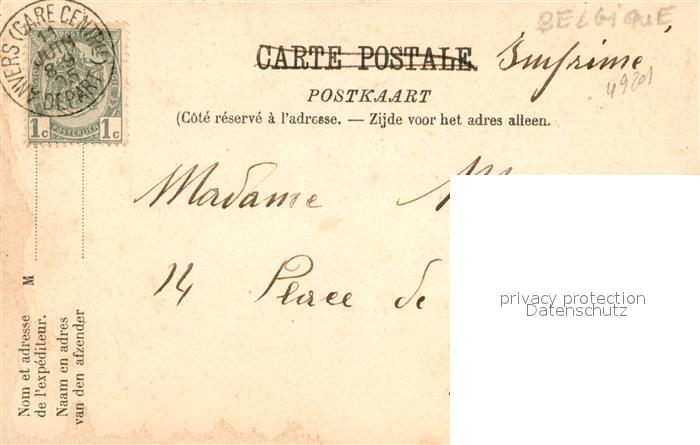 BELGIQUE
CARTE POSTALE. Imprimé
49201
POSTKAART
(Côté réservé à l'adresse. — Zijde voor het adres alleen.
ANVERS (GARE CENTR
JUIN
8-
05
DEPART
1c POSTERIJEN 1c
Madame M
14 Place de
privacy protection
Datenschutz
M
Nom et adresse
de l'expéditeur.
Naam en adres
van den afzender